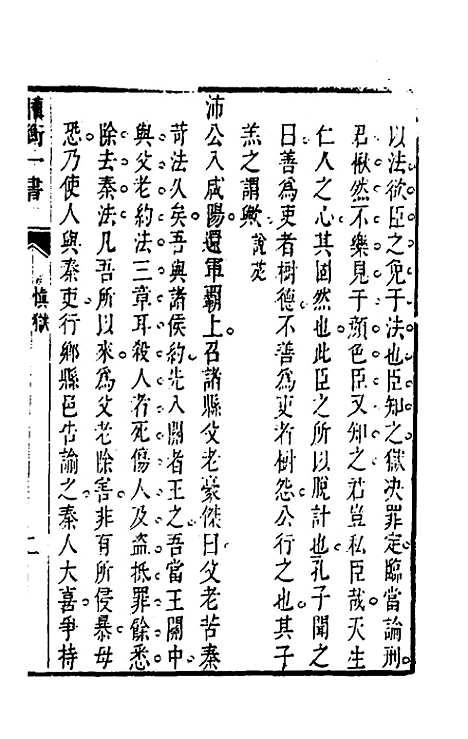 以法欲臣之免于法也臣知之獄決罪定臨當論刑
君愀然不樂見于顏色臣又知之君豈私臣哉天生
仁人之心其固然也此臣之所以脫計也孔子聞之
曰善為吏者樹德不善為吏者樹怨公行之也其子
羔之謂歟說苑
沛公入咸陽還軍霸上召諸縣父老豪傑曰父老苦秦
苛法久矣吾與諸侯約先入關者王之吾當王關中
與父老約法三章耳殺人者死傷人及盜抵罪餘悉
除去秦法凡吾所以來為父老除害非有所侵暴毋
恐乃使人與秦吏行鄉縣邑告諭之秦人大喜爭持
衡一書
慎獄
二